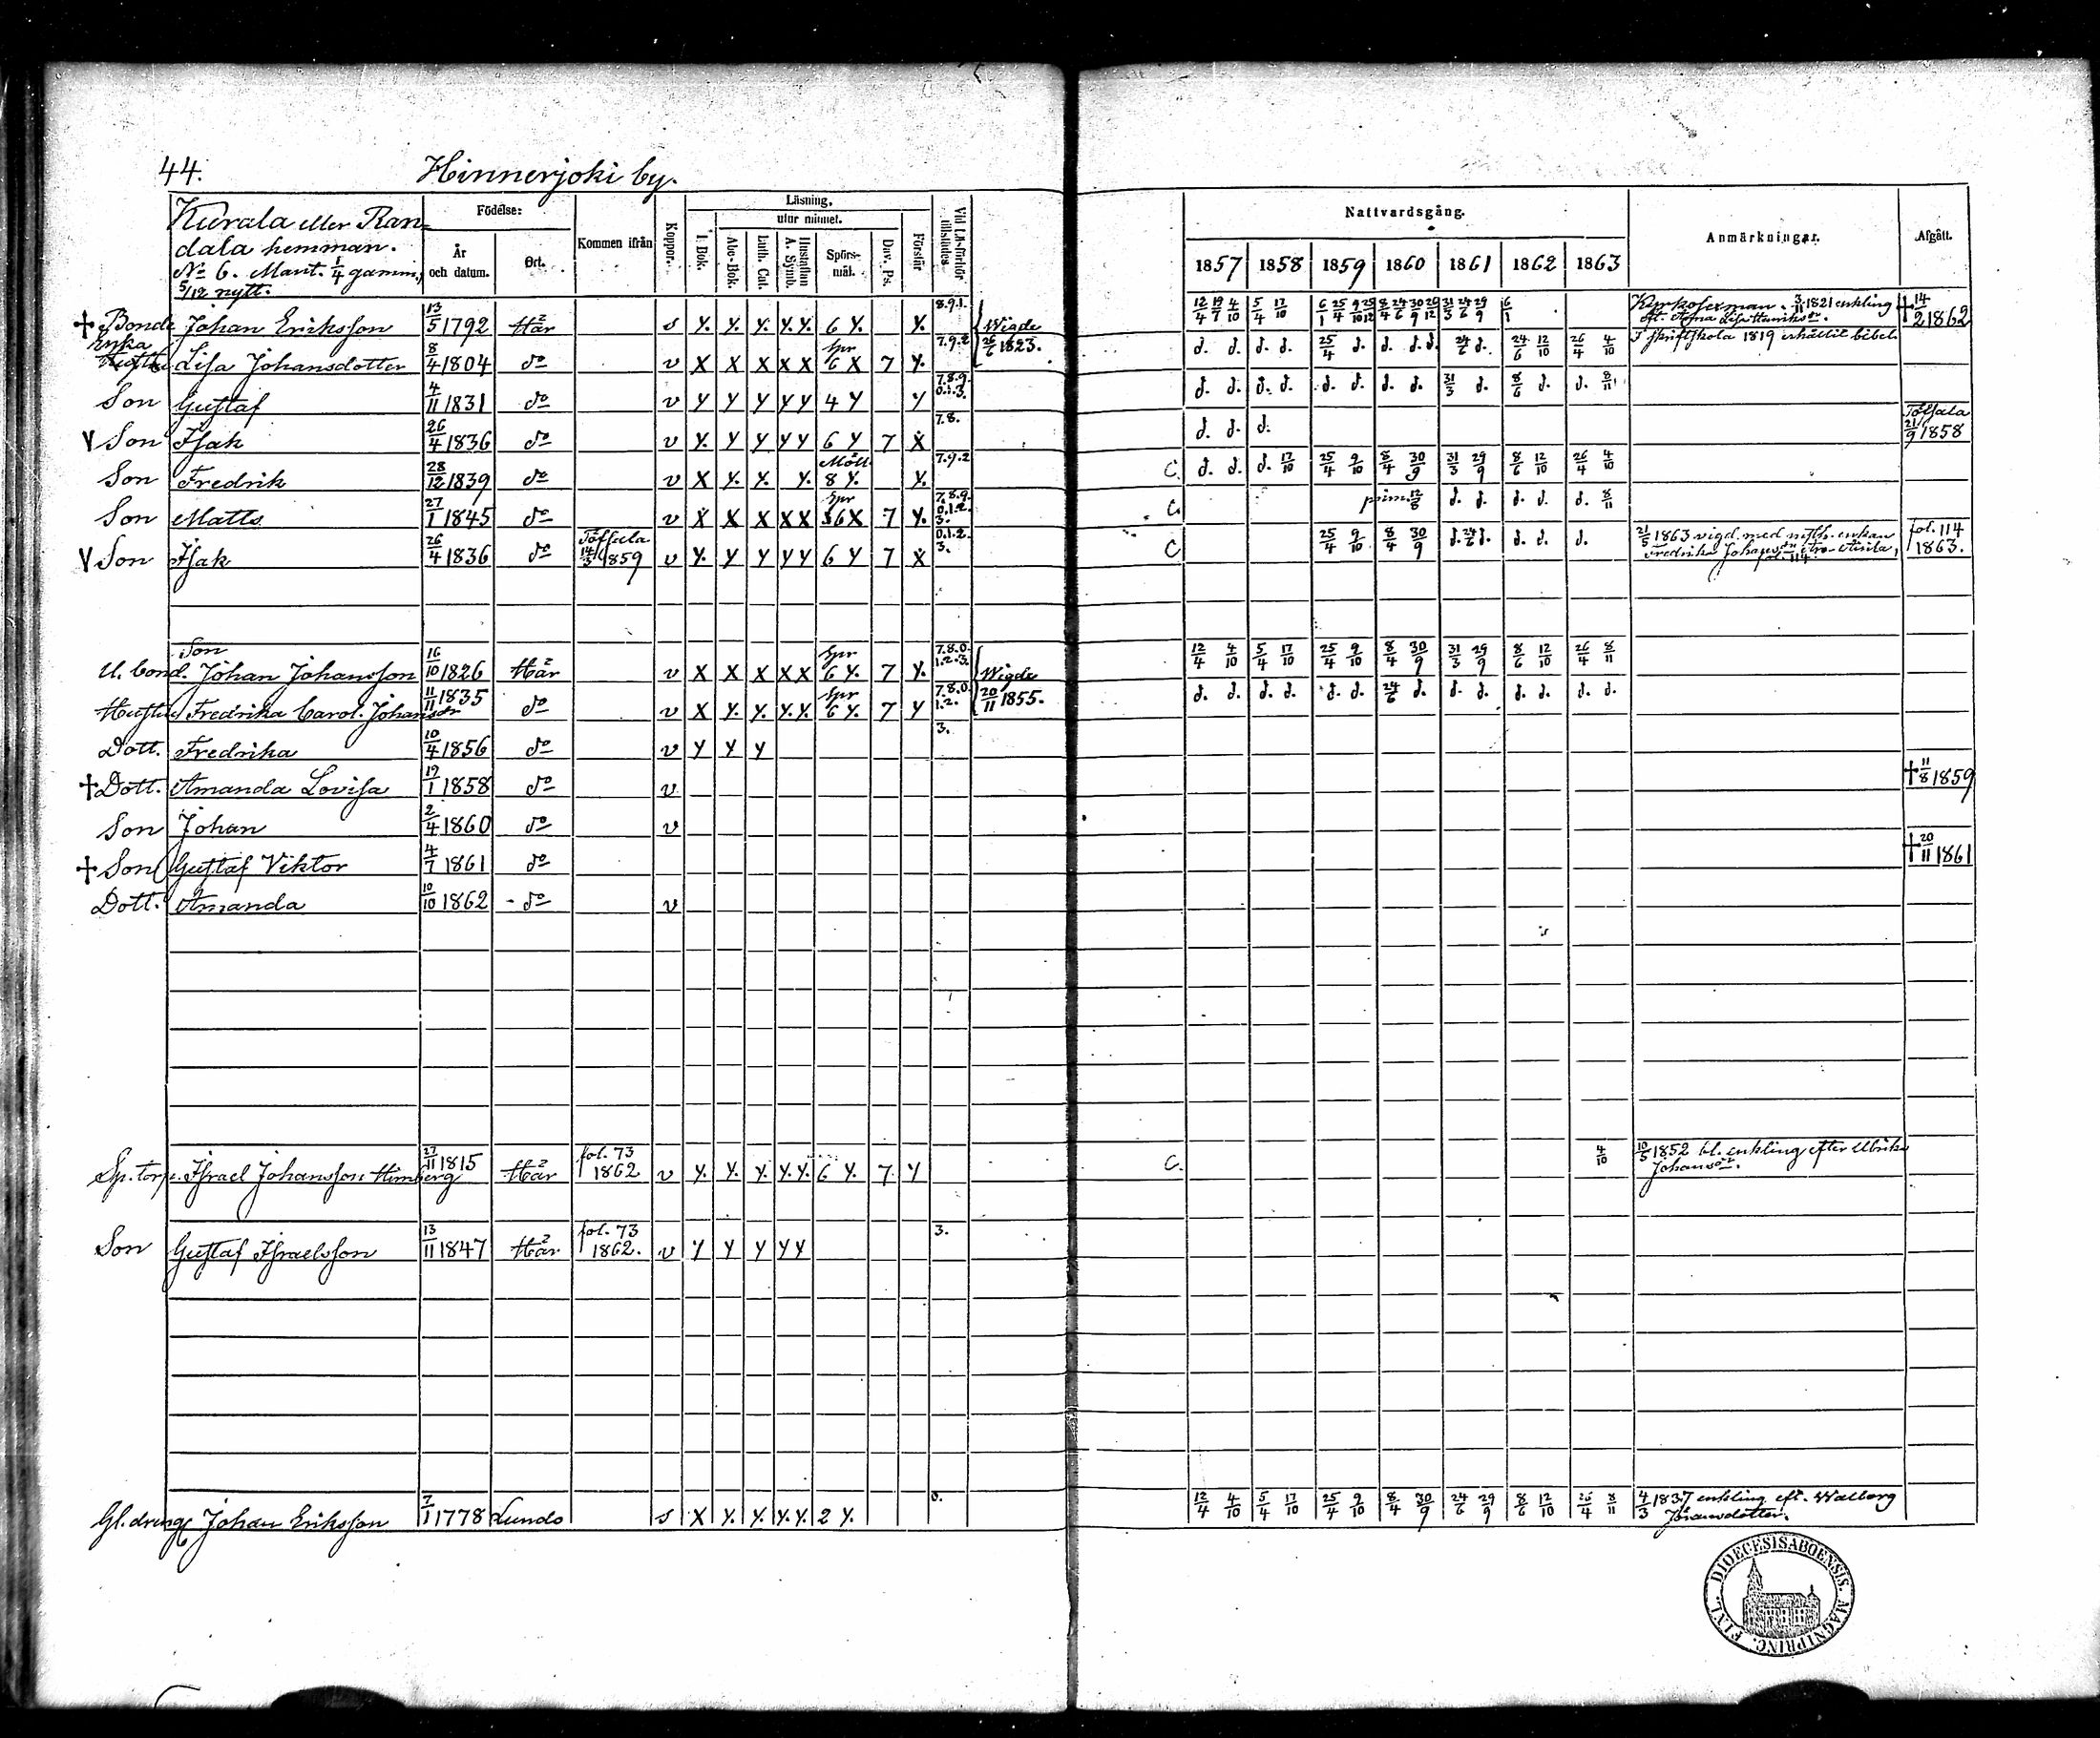 44. Hinnerjoki by.
Kurala eller Ran-
dala hemman.
No 6. Mant. 1/4 gamm.,
5/12 nytt.
Födelse:
År och datum.
Ort.
Kommen ifrån
Koppor.
Läsning,
utur minnet.
I. Bok.
Abc-Bok.
Luth. Cat.
Hustaflan A. Symb.
Spörs-mål.
Dav. Ps.
Förstår
Vid Läsförhör tillstädes
Nattvardsgång.
1857 1858 1859 1860 1861 1862 1863
Anmärkningar.
Afgått.
† Bonde Johan Eriksson 13/5 1792 Här s y. y. y. y. y. 6 y. y. 8.9.1. Wigde 26/6 1823. 12/4 19/7 4/10 5/4 17/10 6/1 25/4 9/10 25/12 8/4 24/6 30/9 26/12 31/3 24/6 29/9 6/1 Kyrkosexman. 3/11 1821 enkling eft. Anna Lisa Henriksdr. † 14/2 1862
Enka Hustru Lisa Johansdotter 8/4 1804 do v X X X X X Spr 6 X 7 y. 7.9.2 d. d. d. d. 25/4 d. d. d. d. 24/6 d. 24/6 12/10 26/4 4/10 I skriftskola 1819 erhållit bibel.
Son Gustaf 4/11 1831 do v y y y y y 4 y y 7.8.9. 0.1.3. d. d. d. d. d. d. d. d. 31/3 d. 8/6 d. d. 8/11
V Son Isak 26/4 1836 do v y. y y y y 6 y 7 X 7.8. d. d. d. Töfsala 21/9 1858
Son Fredrik 28/12 1839 do v X y. y. y. Möll. 8 y. y. 7.9.2 C. d. d. d. 17/10 25/4 9/10 8/4 30/9 31/3 29/9 8/6 12/10 26/4 4/10
Son Matts 27/1 1845 do v X X X X X Spr 6 X 7 y. 7.8.9. 0.1.2. 3. C. prim. 12/8 d. d. d. d. d. 8/11
V Son Isak 26/4 1836 do Töfsala 14/3 1859 v y. y y y y 6 y 7 X 0.1.2. 3. C 25/4 9/10 8/4 30/9 d. 24/6 d. d. d. d. 21/5 1863 vigd. med enkan Fredrika Johansdr fol. 114 fol. 114 1863.
U. bond. Son Johan Johansson 16/10 1826 Här v X X X X X Spr 6 y. 7 y. 7.8.0. 1.2.3. Wigde 20/11 1855. 12/4 4/10 5/4 17/10 25/4 9/10 8/4 30/9 31/3 29/9 8/6 12/10 26/4 8/11
Hustru Fredrika Carol. Johansdr 11/11 1835 do v X y. y. y. y. Spr 6 y. 7 y 7.8.0. 1.2. d. d. d. d. d. d. 24/6 d. d. d. d. d. d. d.
Dott. Fredrika 10/4 1856 do v y y y 3.
† Dott. Amanda Lovisa 19/1 1858 do v † 11/8 1859
Son Johan 2/4 1860 do v
† Son Gustaf Viktor 4/7 1861 do † 20/11 1861
Dott. Amanda 10/10 1862 do v
Sp. torp. Israel Johansson Himberg 27/11 1815 Här fol. 73 1862 v y. y. y. y. y. 6 y. 7 y C. 4/10 10/5 1852 bl. enkling efter Ulrika Johansdr.
Son Gustaf Israelsson 13/11 1847 Här fol. 73 1862. v y y y y y 3.
Gl. dreng Johan Eriksson 7/1 1778 Lundo s X y. y. y. y. 2 y. 0. 12/4 4/10 5/4 17/10 25/4 9/10 8/4 30/9 24/6 29/9 8/6 12/10 26/4 8/11 4/3 1837 enkling eft. Walborg Johansdotter.
DIOECESIS ABOENSIS. MAGNI PRINC. FINL.